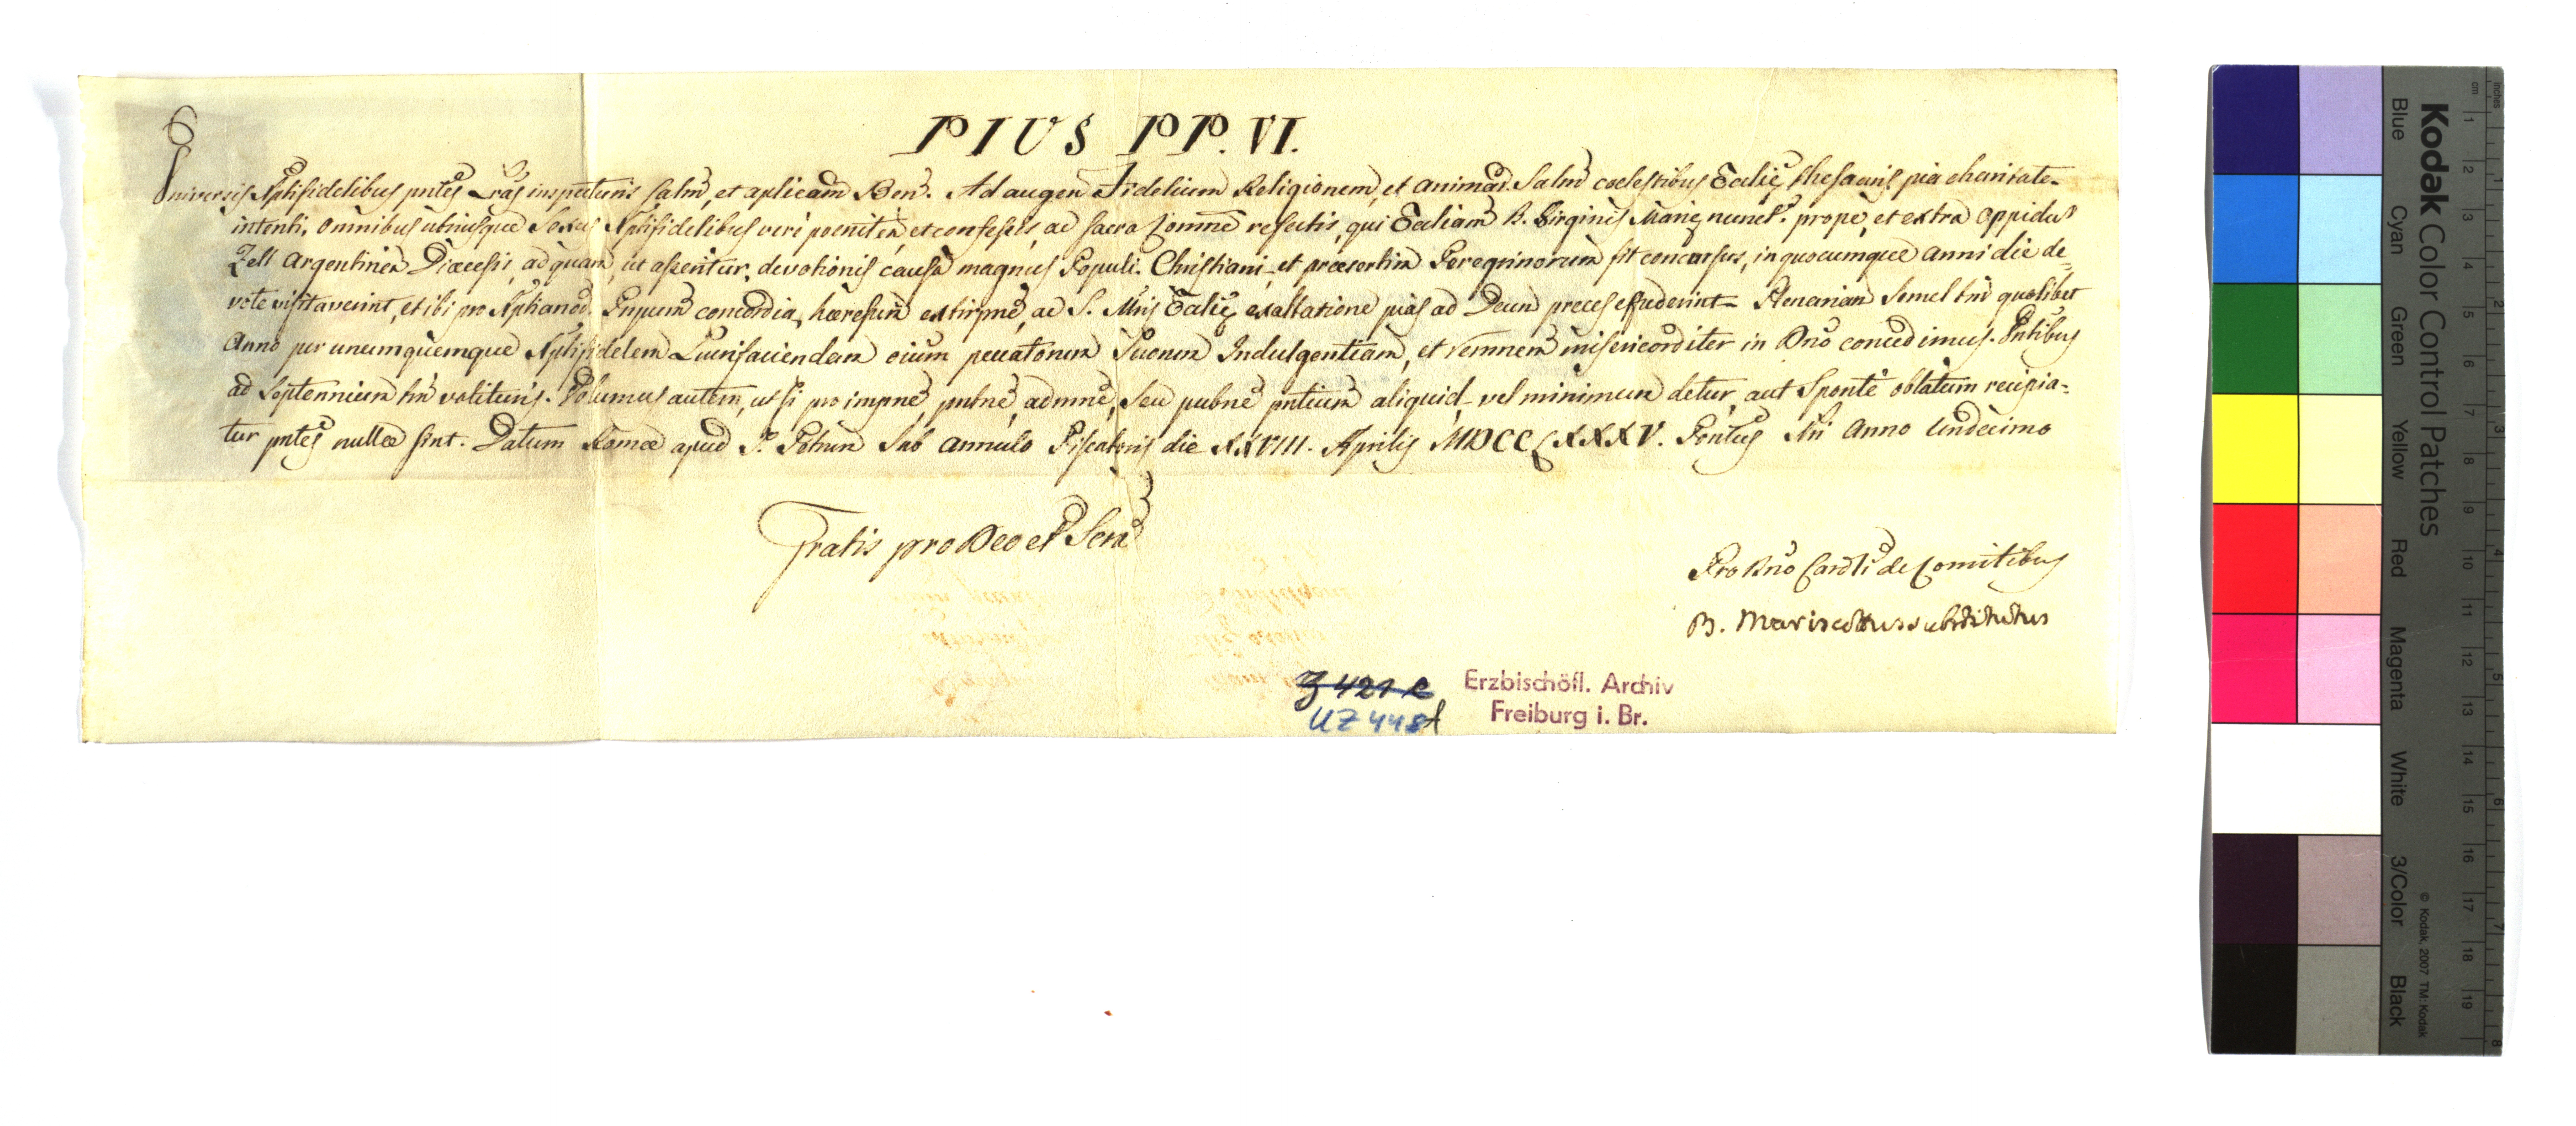 PIUS PP. VI.
Universis Xptifidelibus pntes Lras inspecturis salm, et aplicam Ben. Ad augen Fidelium Religionem, et animar. salm coelestibus Ecclie thesauris pia charitate
intenti, omnibus utriusque Sexus Xptifidelibus veré poeniten et confessis, ac Sacra Comme refectis, qui Eccliam B. Virginis Marie nunct. prope, et extra oppidu
Zell Argentinen Dioecesis, ad quam, ut asseritur, devotionis causa magnus Populi Christiani et praesertim Peregrinorum fit concursus, in quocumque anni die de=
vote visitaverint, et ibi pro Xptianor. Prpum concordia, haeresum extirpne, ac S. Mris Ecclie exaltatione pias ad Deum preces effuderint Plenariam semel tm quolibet
Anno per unumquemque Xptifidelem Lucrifaciendam oium peccatorum Suorum Indulgentiam, et remnem misericorditer in Dno concedimus. Pntibus
ad Septennium tm valituris. Volumus autem, ut si pro impne, pntne, admne, Seu pubne pntium aliquid vel minimum detur, aut Sponte oblatum recipia=
tur pntes nullae sint. Datum Romae apud S. Petrum Sub annulo Piscatoris die XXVIII. Aprilis MDCCLXXXV. Pontus Nri Anno Undecimo
Gratis pro Deo et Scra
Pro Dno Cardli de Comitibus
B. Mariscottus substitutus
Z 421 e
UZ 448f
Erzbischöfl. Archiv
Freiburg i. Br.
Kodak Color Control Patches
Blue Cyan Green Yellow Red Magenta White 3/Color Black
© Kodak, 2007 TM: Kodak
cm 1 2 3 4 5 6 7 8 9 10 11 12 13 14 15 16 17 18 19
inches 1 2 3 4 5 6 7 8